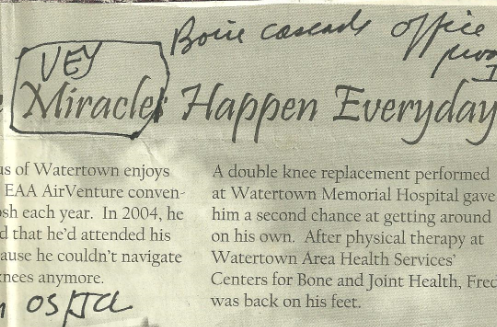 Boise cascade office
VEY
Miracles Happen Everyday
us of Watertown enjoys
EAA AirVenture conven-
osh each year. In 2004, he
d that he'd attended his
ause he couldn't navigate
knees anymore.
A double knee replacement performed
at Watertown Memorial Hospital gave
him a second chance at getting around
on his own. After physical therapy at
Watertown Area Health Services'
Centers for Bone and Joint Health, Fred
was back on his feet.